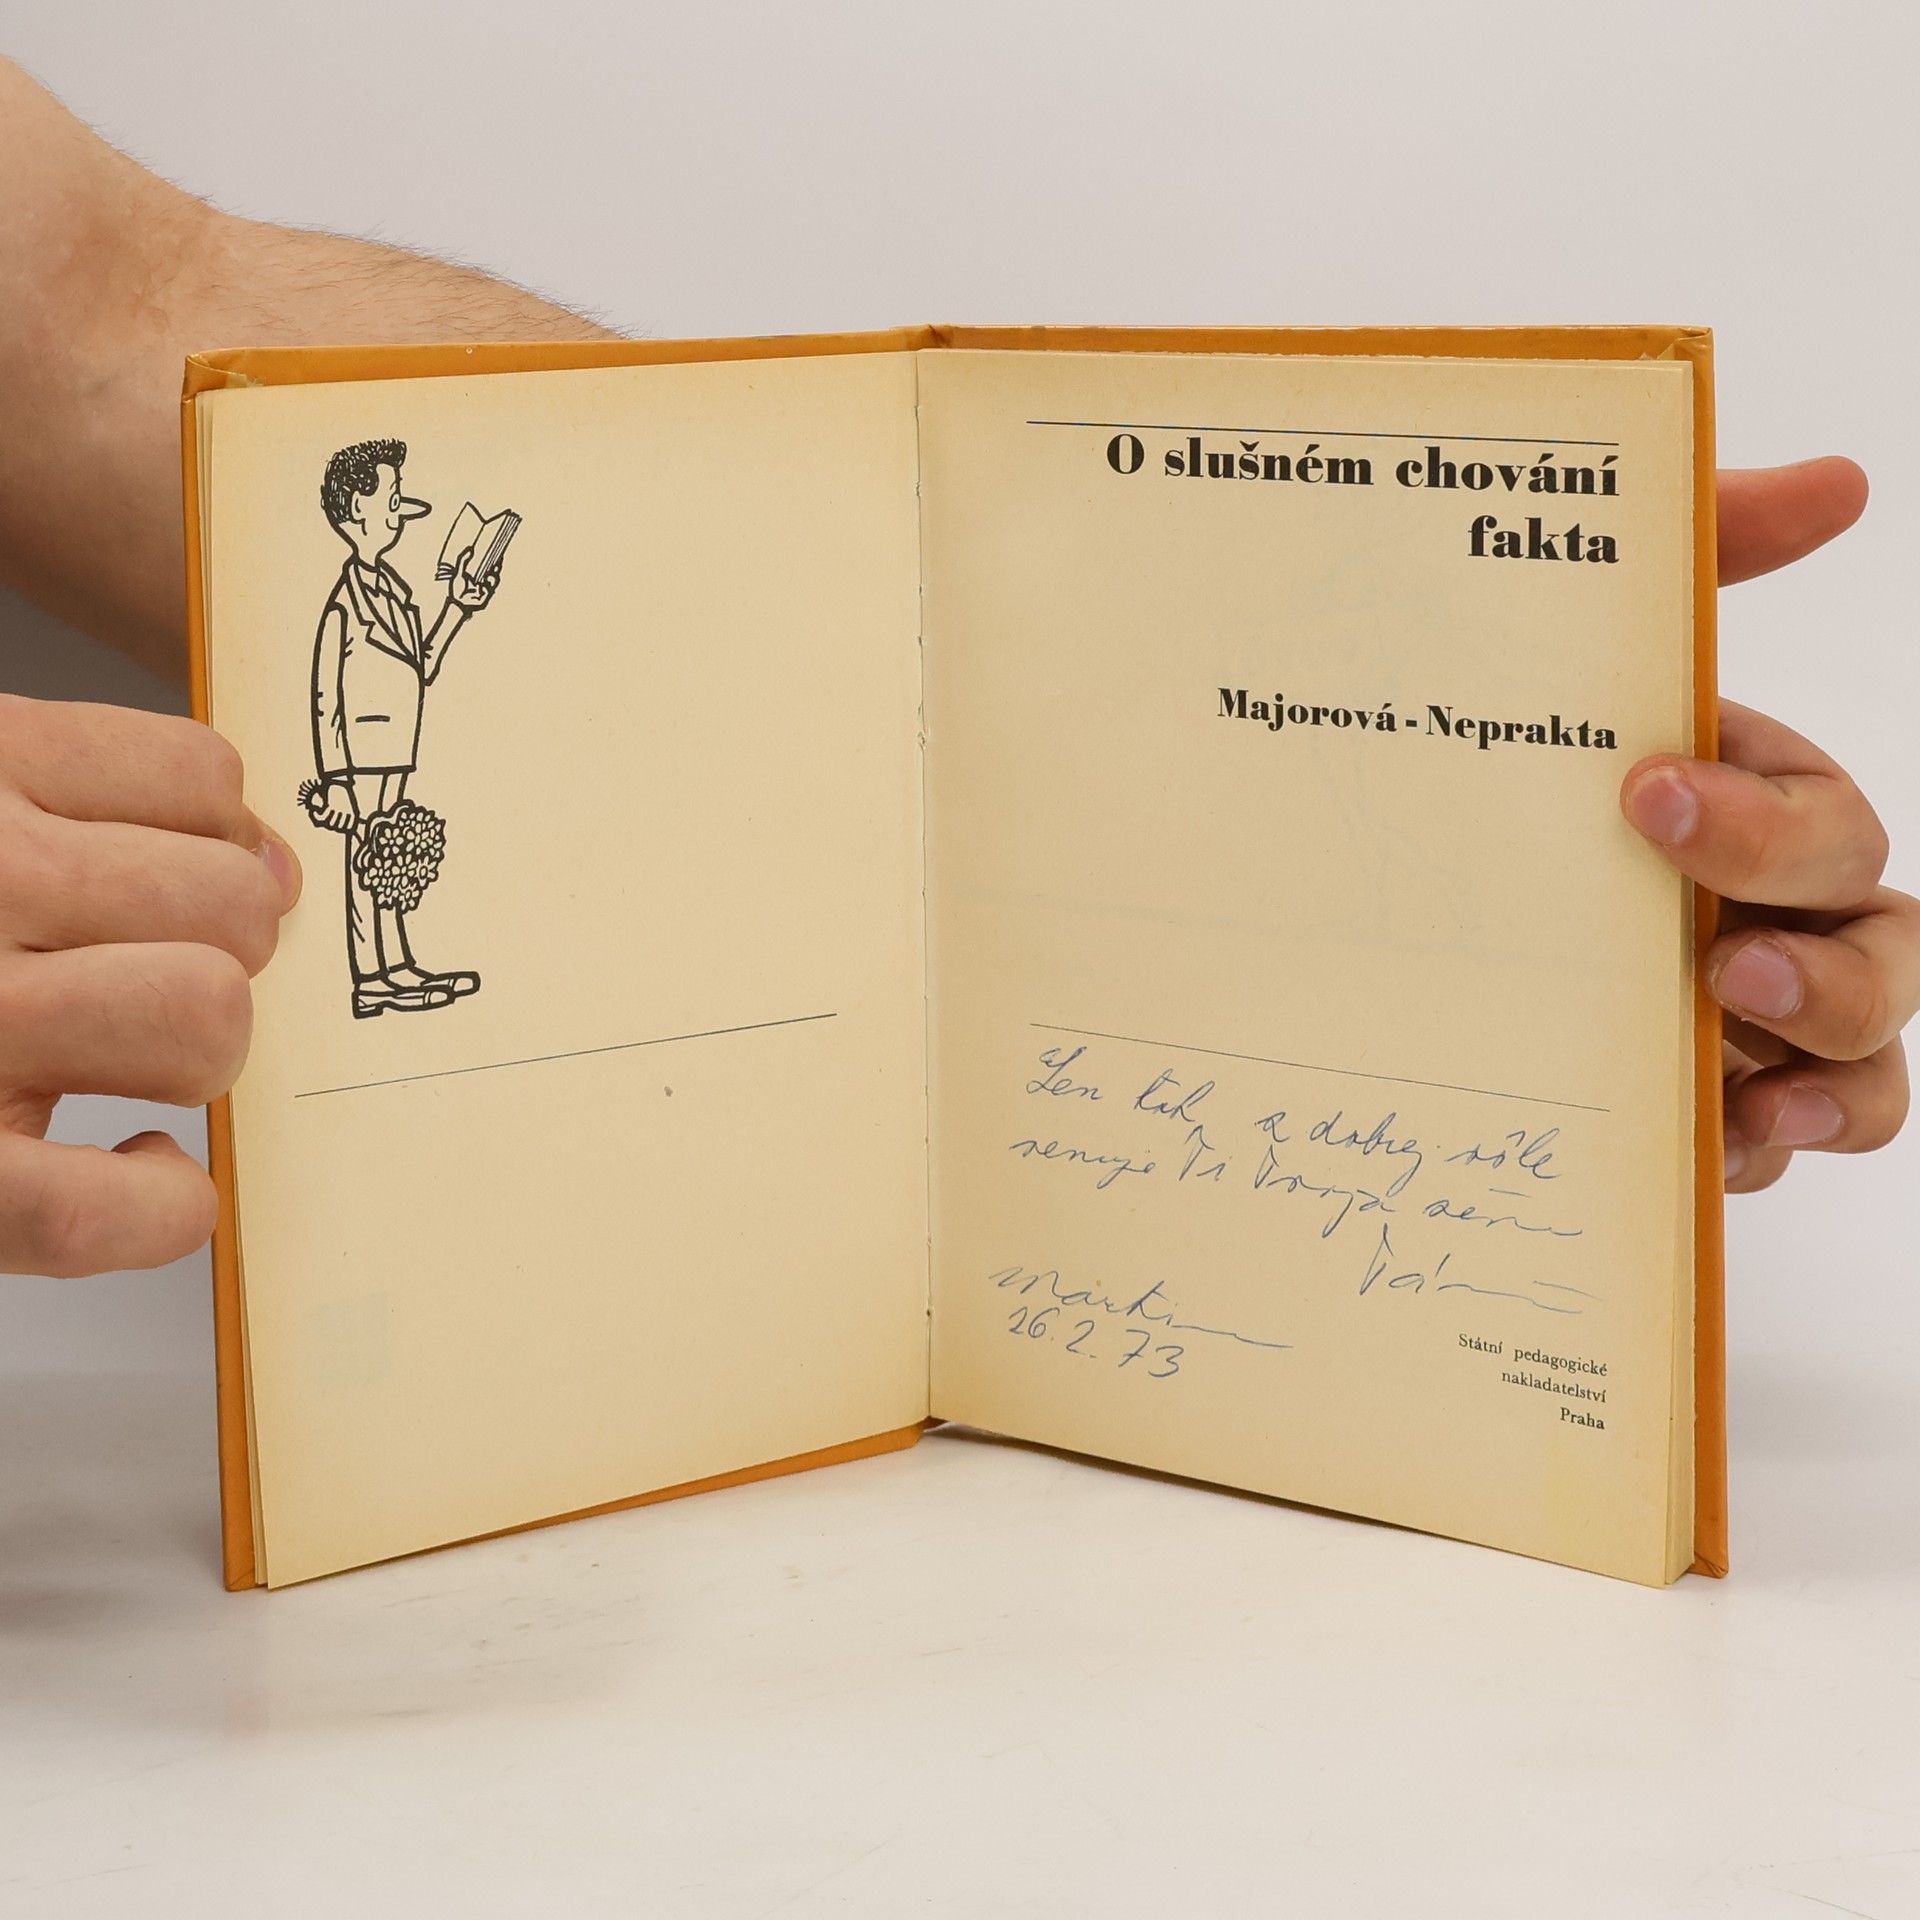 O slušném chování
fakta
Majorová - Neprakta
Len tak, z dobrej vôle
venuje Ti Tvoja
Martin
26. 2. 73
Státní pedagogické
nakladatelství
Praha